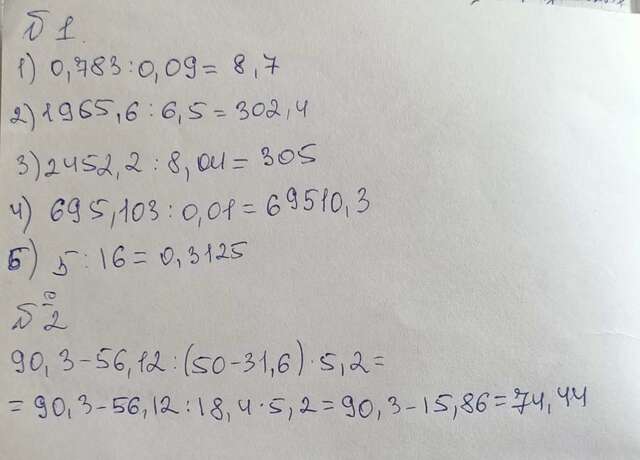 №1.
1) 0,783:0,09= 8,7
2) 1965,6:6,5=302,4
3) 2452,2:8,04=305
4) 695,103:0,01=69510,3
5) 5:16=0,3125
№2
90,3-56,12:(50-31,6)·5,2=
=90,3-56,12:18,4·5,2=90,3-15,86=74,44